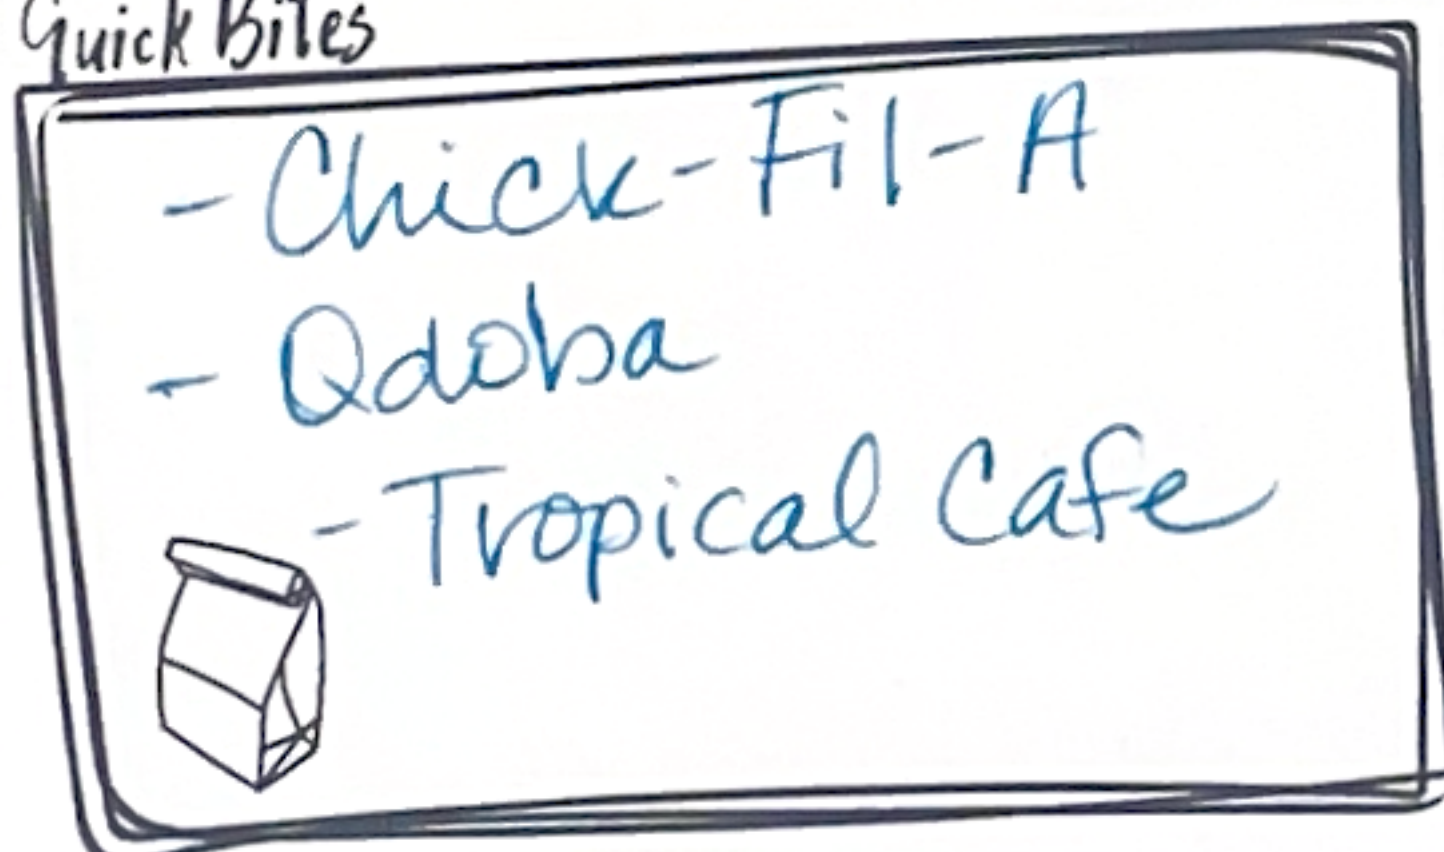 Quick Bites
- Chick-Fil-A
- Qdoba
- Tropical Cafe